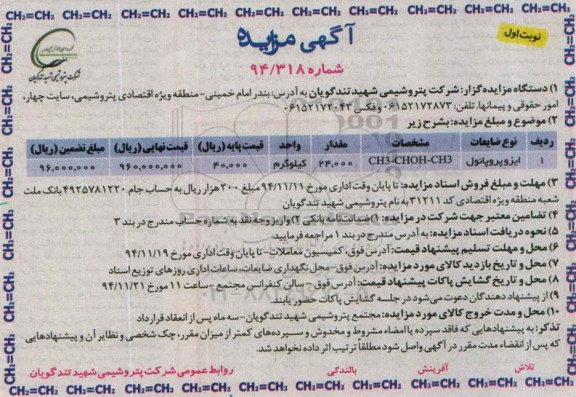 CH₂=CH₂ CH₂=CH₂ CH₂=CH₂ CH₂=CH₂ CH₂=CH₂ CH₂=CH₂ CH₂=CH₂ CH₂=CH₂ CH₂=CH₂ CH₂=CH₂
نوبت اول
آگهی مزایده
شماره ۹۴/۳۱۸
شرکت پتروشیمی شهید تندگویان
۱) دستگاه مزایده گزار: شرکت پتروشیمی شهید تندگویان به آدرس: بندر امام خمینی- منطقه ویژه اقتصادی پتروشیمی، سایت چهار،
امور حقوقی و پیمانها. تلفن: ۰۶۱۵۲۱۷۲۸۷۳ وفکس ۰۶۱۵۲۱۷۲۰۴۳
۲) موضوع و مبلغ مزایده: بشرح زیر
ردیف نوع ضایعات مشخصات مقدار واحد قیمت پایه (ریال) قیمت نهایی (ریال) مبلغ تضمین (ریال)
۱ ایزوپروپانول CH3-CHOH-CH3 ۲۴,۰۰۰ کیلوگرم ۴۰,۰۰۰ ۹۶۰,۰۰۰,۰۰۰ ۹۶,۰۰۰,۰۰۰
۳) مهلت و مبلغ فروش اسناد مزایده: تا پایان وقت اداری مورخ ۹۴/۱۱/۱۱ مبلغ ۲۰۰ هزار ریال به حساب جام ۴۹۲۵۷۸۱۲۲۰ بانک ملت
شعبه منطقه ویژه اقتصادی کد ۳۱۲۱۱ به نام پتروشیمی شهید تندگویان
۴) تضامین معتبر جهت شرکت در مزایده: ۱) ضمانت نامه بانکی ۲) واریز وجه نقد به شماره حساب مندرج در بند ۳
۵) نحوه دریافت اسناد مزایده: به آدرس مندرج در بند ۱ مراجعه فرمایید.
۶) محل و مهلت تسلیم پیشنهاد قیمت: آدرس فوق، کمیسیون معاملات- تا پایان وقت اداری مورخ ۹۴/۱۱/۱۹
۷) محل و تاریخ بازدید کالای مورد مزایده: آدرس فوق- محل نگهداری ضایعات، ساعات اداری روزهای توزیع اسناد
۸) محل و تاریخ گشایش پاکات پیشنهاد قیمت: آدرس فوق- سالن کنفرانس مجتمع- ساعت ۱۱ مورخ ۹۴/۱۱/۲۱
۹) از پیشنهاد دهندگان دعوت می شود در جلسه گشایش پاکات حضور یابند.
۱۰) محل و مدت خروج کالای مورد مزایده: مجتمع پتروشیمی شهید تندگویان- سه ماه پس از انعقاد قرارداد
تذکر: به پیشنهادهایی که فاقد سپرده یا امضاء مشروط و مخدوش و سپرده های کمتر از میزان مقرر، چک شخصی و نظایر آن و پیشنهادهایی
که پس از انقضاء مدت مقرر در آگهی واصل شود مطلقاً ترتیب اثر داده نخواهد شد.
تلاش آفرینش بالندگی روابط عمومی شرکت پتروشیمی شهید تندگویان
CH₂=CH₂ CH₂=CH₂ CH₂=CH₂ CH₂=CH₂ CH₂=CH₂ CH₂=CH₂ CH₂=CH₂ CH₂=CH₂ CH₂=CH₂ CH₂=CH₂